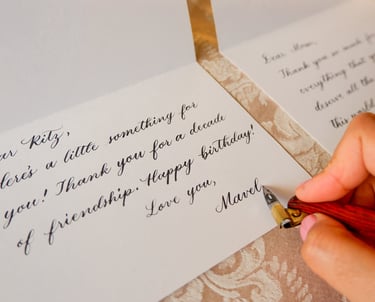 ar Ritz,
Here's a little something for
you! Thank you for a decade
of friendship. Happy birthday!
Love you,
Mavel
Dear Mom,
Thank you so much for
everything that yo
deserve all the
this world